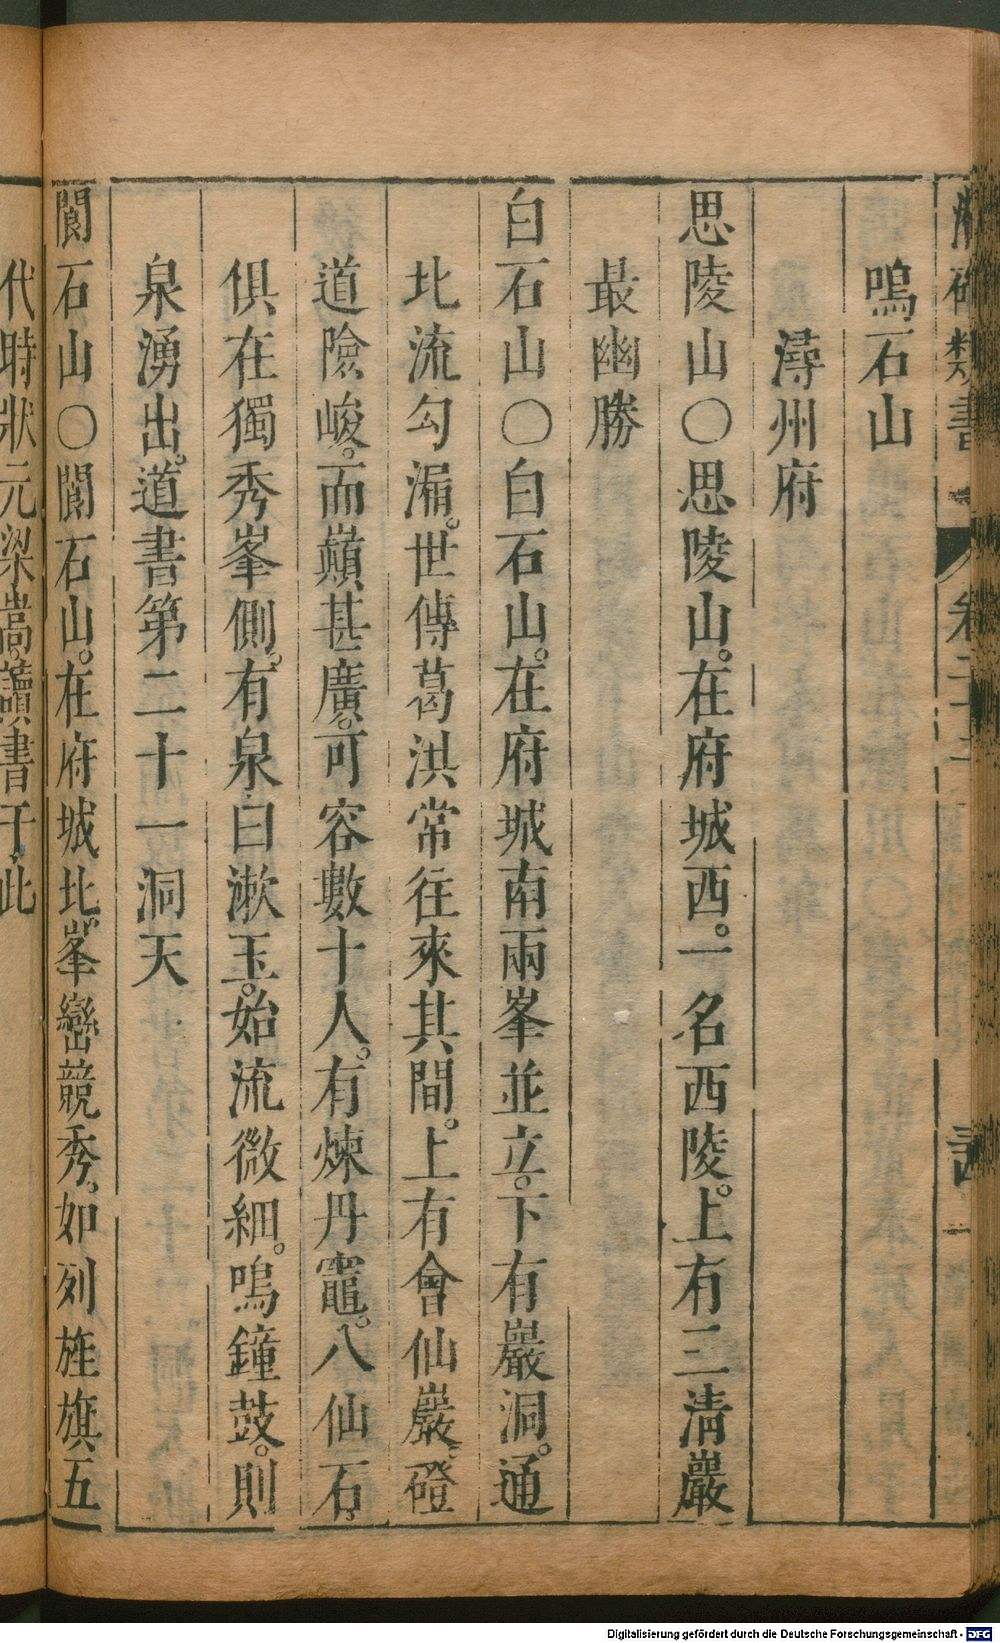 類書
鳴石山
潯州府
思陵山〇思陵山。在府城西。一名西陵。上有三清巖
最幽勝
白石山〇白石山。在府城南兩峯並立。下有巖洞。通
北流勾漏。世傳葛洪常往來其間。上有會仙巖。磴
道險峻。而巔甚廣。可容數十人。有煉丹竈。八仙石。
俱在獨秀峯側。有泉曰漱玉。始流微細。鳴鐘鼓。則
泉湧出。道書第二十一洞天
閬石山〇閬石山。在府城北。峯巒競秀。如列旌旗五
代時狀元梁嵩。讀書于此
Digitalisierung gefördert durch die Deutsche Forschungsgemeinschaft - DFG